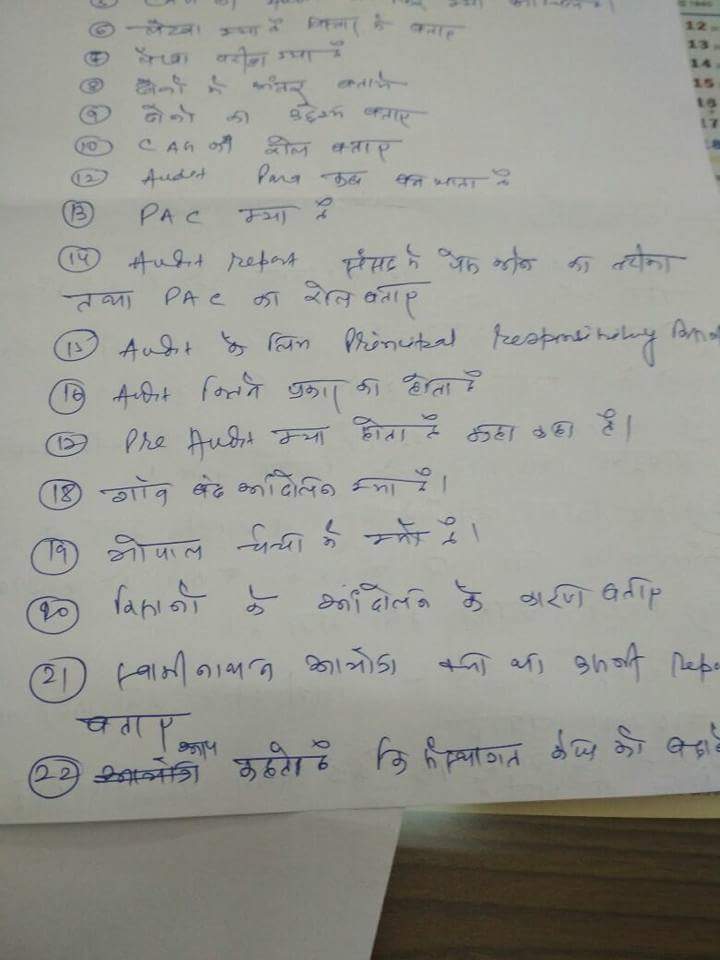 ⑥ लेखा क्या है विस्तार से बताए
⑦ लेखा परीक्षा क्या है
⑧ दोनों में अंतर बताये
⑨ दोनों का उद्देश्य बताए
⑩ CAG की रोल बताए
⑫ Audit Para कहा बन जाता है
⑬ PAC क्या है
⑭ Audit report संसद में पेश करने का तरीका
तथा PAC का रोल बताए
⑮ Audit के लिए Principal Responsibility
⑯ Audit कितने प्रकार का होता है
⑰ Pre Audit क्या होता है कहा कहा है।
⑱ गाँव बंद आंदोलन क्या है।
⑲ भोपाल चर्चा में क्यों है।
⑳ किसानों के आंदोलन के कारण बताए
㉑ स्वामीनाथन आयोग क्या था उसकी Repo
बताए
㉒ आप कहते है कि संस्थागत को
12
13
14
15
16
17
18